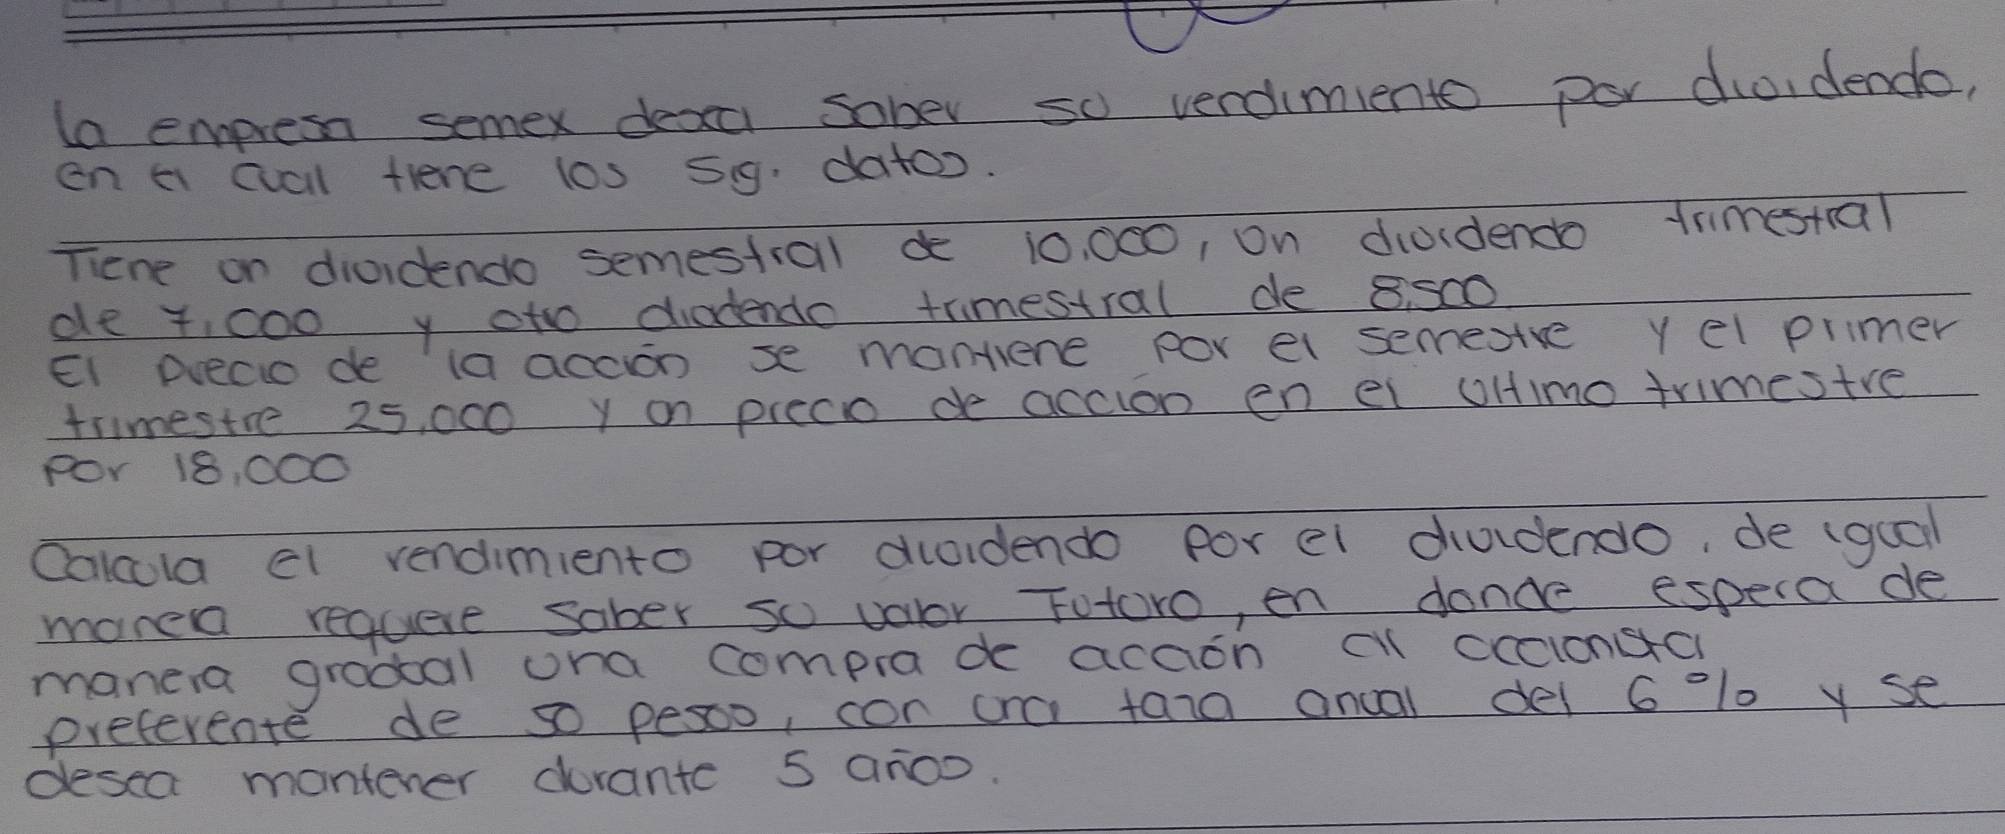 la empresa semex desea saber su rendimiento por dividendo,
en el cual tiene los sig. datos.
Tiene un dividendo semestral de 10.000, un dividendo trimestral
de 7,000 y otro dividendo trimestral de 8,500
El precio de la acción se mantiene por el semestre y el primer
trimestre 25,000 y un precio de acción en el ultimo trimestre
por 18,000
Calcula el rendimiento por dividendo por el dividendo, de igual
manera requiere saber su valor Futuro, en donde espera de
manera gradual una compra de acción al accionista
preferente de 50 pesos, con una taza anual del 6% y se
desea mantener durante 5 años.